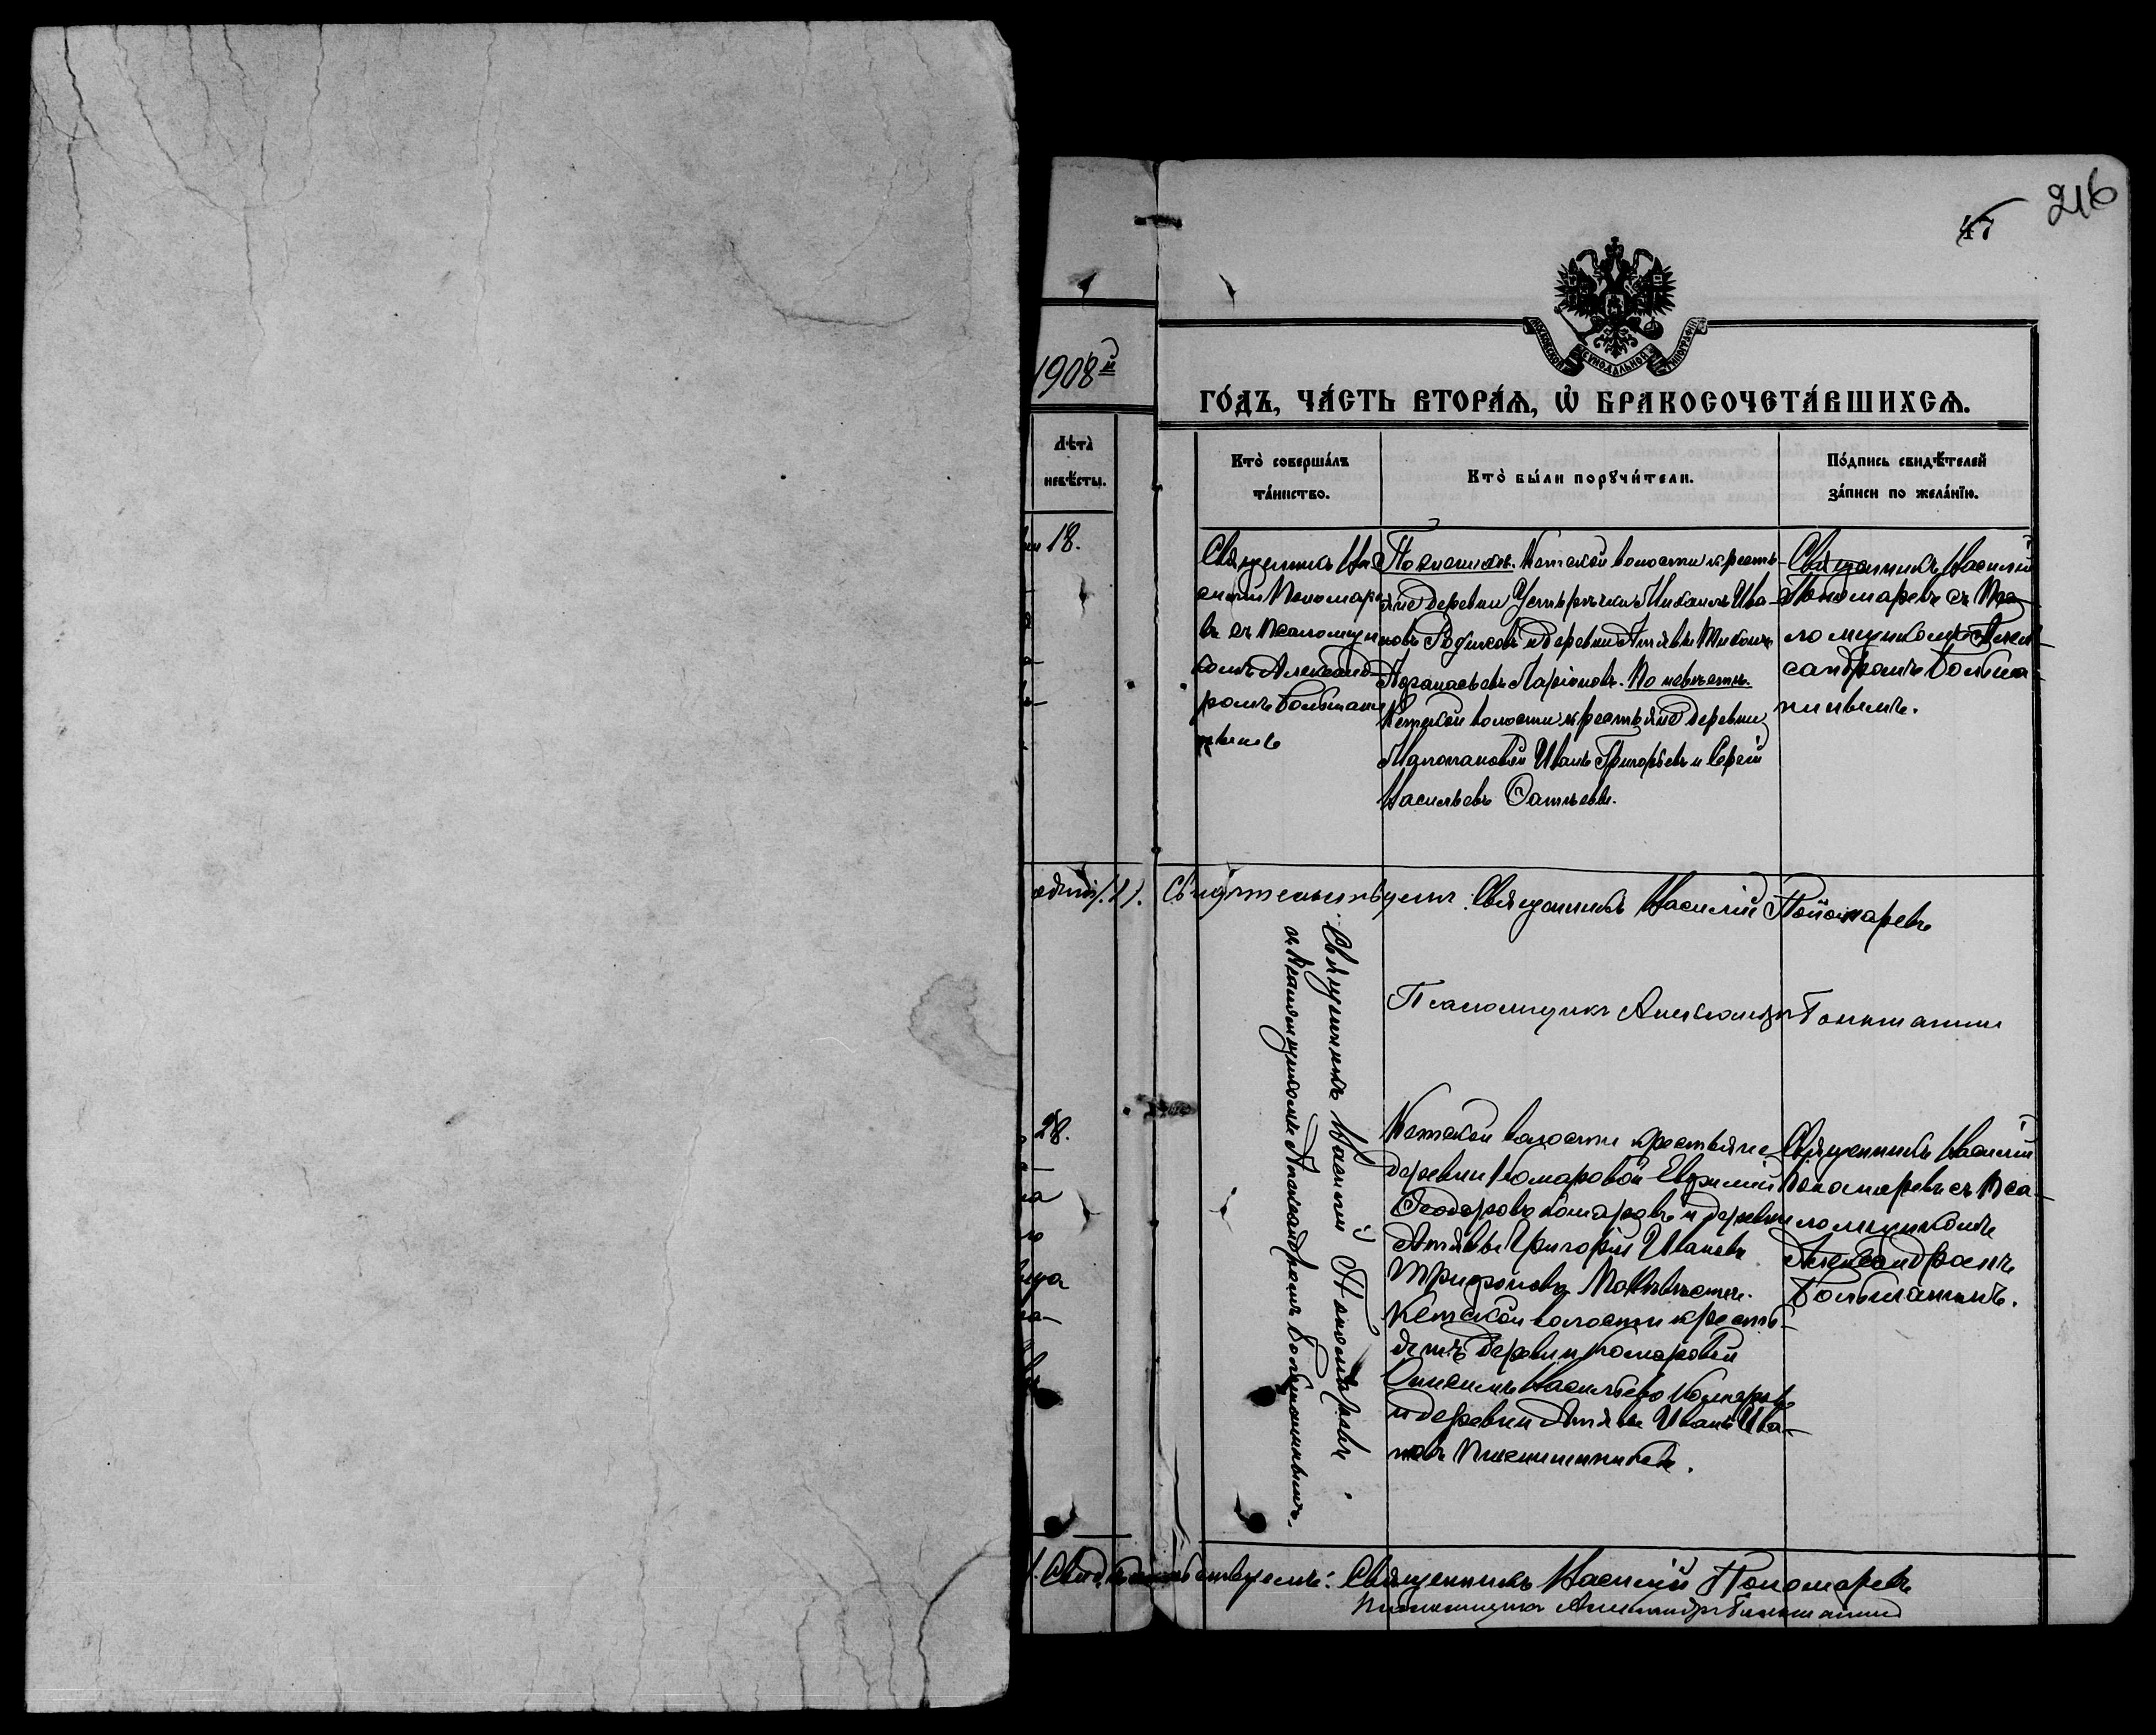 216
47
МОСКОВСКОЙ СѴНОДАЛЬНОЙ ТИПОГРАФІИ
1908й
ГО́ДЪ, ЧА́СТЬ ВТОРА́Ѧ, Ѽ БРАКОСОЧЕТА́ВШИХСѦ.
Лѣта̀
невѣ́сты.
Кто̀ соверша́лъ
та́инство.
Кто̀ бы́ли порꙋчи́тели.
По́дпись свидѣ́телей
за́писи по жела́нїю.
18.
Священникъ Ва
силій Пономаре
въ съ псаломщи
комъ Александ-
ромъ Больтани
нымъ
По женихѣ: Кетской волости кресть-
яне деревни Устьрѣчки Михаилъ Ива-
новъ Родиковъ и деревни Атяевы Михаилъ
Афанасьевъ Ларіоновъ. По невѣстѣ:
Кетской волости крестьяне деревни
Иванъ Григорьевъ и Сергій
Васильевъ
Священникъ Василій
Пономаревъ съ Пса
ломщикомъ Алек-
сандромъ Больта
нинымъ.
Свидѣтельствуемъ: Священникъ Василій Пономаревъ
Псаломщикъ Александръ Больтанинъ
28.
Священникъ Василій Пономаревъ
съ Псаломщикомъ Александромъ Больтанинымъ.
Кетской волости крестьяне
деревни Комаровой Евфимій
Ѳеодоровъ Комаровъ и деревни
Атяевы Григорій Ивановъ
Трифоновъ. По невѣстѣ:
Кетской волости кресть-
янинъ деревни Комаровой
Онисимъ Васильевъ Комаровъ
и деревни Атяевы Иванъ Ива-
новъ Пшеничниковъ.
Священникъ Василій
Пономаревъ съ Пса-
ломщикомъ
Александромъ
Больтанинымъ.
Свидѣтельствуемъ: Священникъ Василій Пономаревъ
Псаломщикъ Александръ Больтанинъ